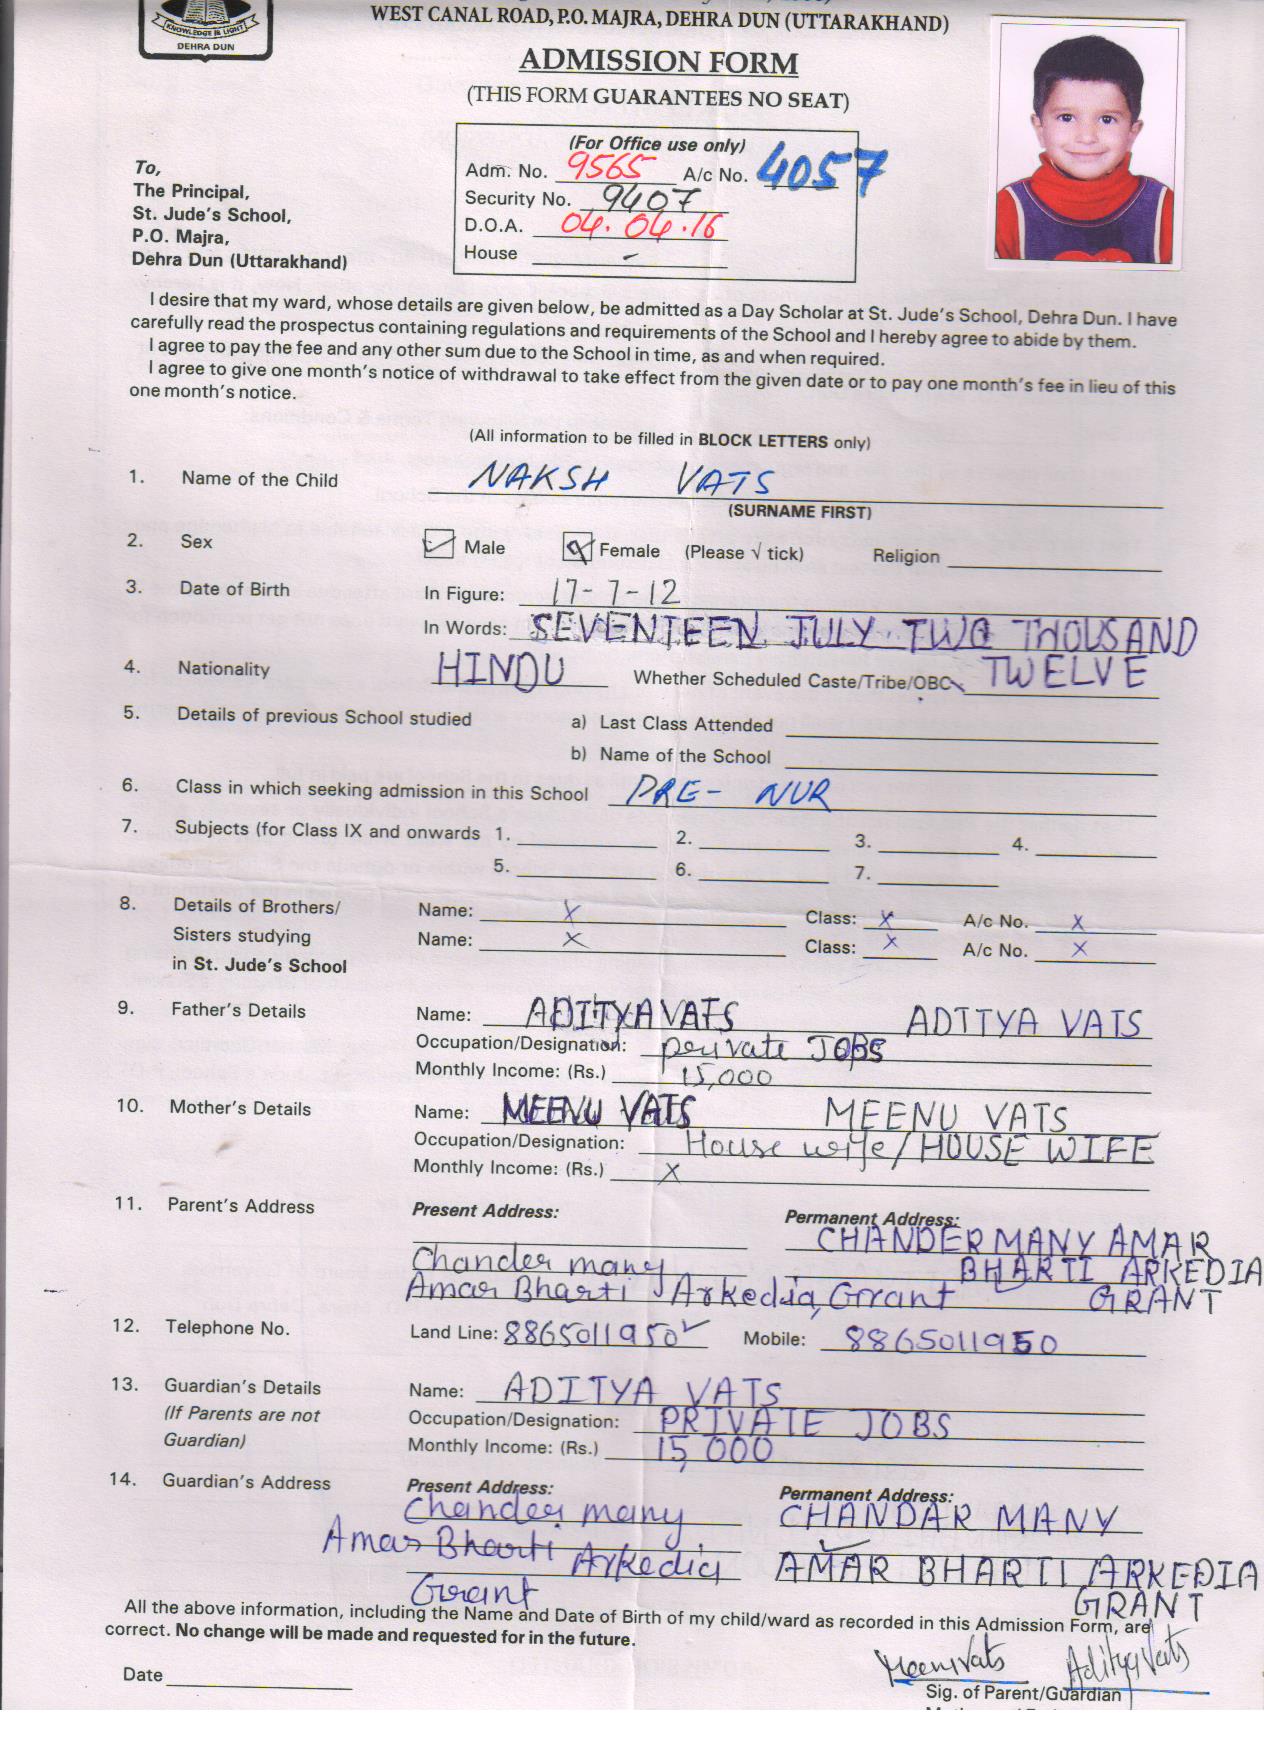 KNOWLEDGE IS LIGHT
DEHRA DUN
WEST CANAL ROAD, P.O. MAJRA, DEHRA DUN (UTTARAKHAND)
ADMISSION FORM
(THIS FORM GUARANTEES NO SEAT)
(For Office use only)
Adm. No. 9565 A/c No. 4057
Security No. 9407
D.O.A. 04.04.16
House -
To,
The Principal,
St. Jude's School,
P.O. Majra,
Dehra Dun (Uttarakhand)
I desire that my ward, whose details are given below, be admitted as a Day Scholar at St. Jude's School, Dehra Dun. I have
carefully read the prospectus containing regulations and requirements of the School and I hereby agree to abide by them.
I agree to pay the fee and any other sum due to the School in time, as and when required.
I agree to give one month's notice of withdrawal to take effect from the given date or to pay one month's fee in lieu of this
one month's notice.
(All information to be filled in BLOCK LETTERS only)
1. Name of the Child NAKSH VATS
(SURNAME FIRST)
2. Sex Male Female (Please √ tick) Religion
3. Date of Birth In Figure: 17-7-12
In Words: SEVENTEEN JULY TWO THOUSAND
4. Nationality HINDU Whether Scheduled Caste/Tribe/OBC TWELVE
5. Details of previous School studied a) Last Class Attended
b) Name of the School
6. Class in which seeking admission in this School PRE- NUR
7. Subjects (for Class IX and onwards 1. 2. 3. 4.
5. 6. 7.
8. Details of Brothers/ Name: X Class: X A/c No. X
Sisters studying Name: X Class: X A/c No. X
in St. Jude's School
9. Father's Details Name: ADITYA VATS ADITYA VATS
Occupation/Designation: private JOBS
Monthly Income: (Rs.) 15,000
10. Mother's Details Name: MEENU VATS MEENU VATS
Occupation/Designation: House wife/HOUSE WIFE
Monthly Income: (Rs.) X
11. Parent's Address Present Address: Permanent Address:
CHANDER MANY AMAR
Chander many BHARTI ARKEDIA
Amar Bharti Arkedia, Grant GRANT
12. Telephone No. Land Line: 8865011950 Mobile: 8865011950
13. Guardian's Details Name: ADITYA VATS
(If Parents are not Occupation/Designation: PRIVATE JOBS
Guardian) Monthly Income: (Rs.) 15,000
14. Guardian's Address Present Address: Permanent Address:
Chander many CHANDAR MANY
Amar Bharti Arkedia AMAR BHARTI ARKEDIA
Grant GRANT
All the above information, including the Name and Date of Birth of my child/ward as recorded in this Admission Form, are
correct. No change will be made and requested for in the future.
Meenu Vats Aditya Vats
Date Sig. of Parent/Guardian